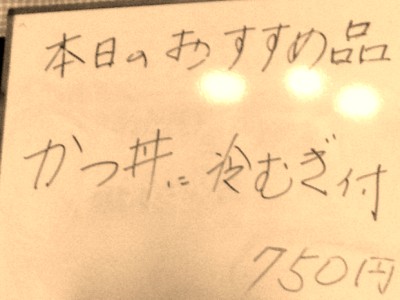 本日のおすすめ品
かつ丼に冷むぎ付
750円